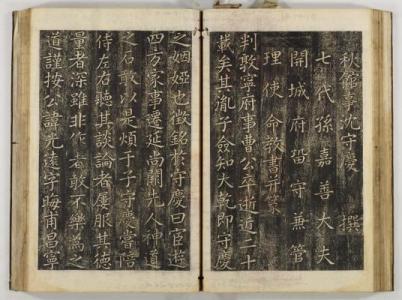 秋館事沈守慶撰
七代孫嘉善大夫
開城府留守兼管
理使命敎書并篆
判敦寧府事曹公卒逝二十
載矣其胤子僉知大乾即守慶
之姻婭也徵銘於守慶曰宦遊
四方家事遷延尚闕先人神道
之石敢以是煩于子守慶嘗陪
侍左右聽其談論者屢服其德
量者深雖非作者敢不樂爲之
道謹按公諱光遠字晦甫昌寧